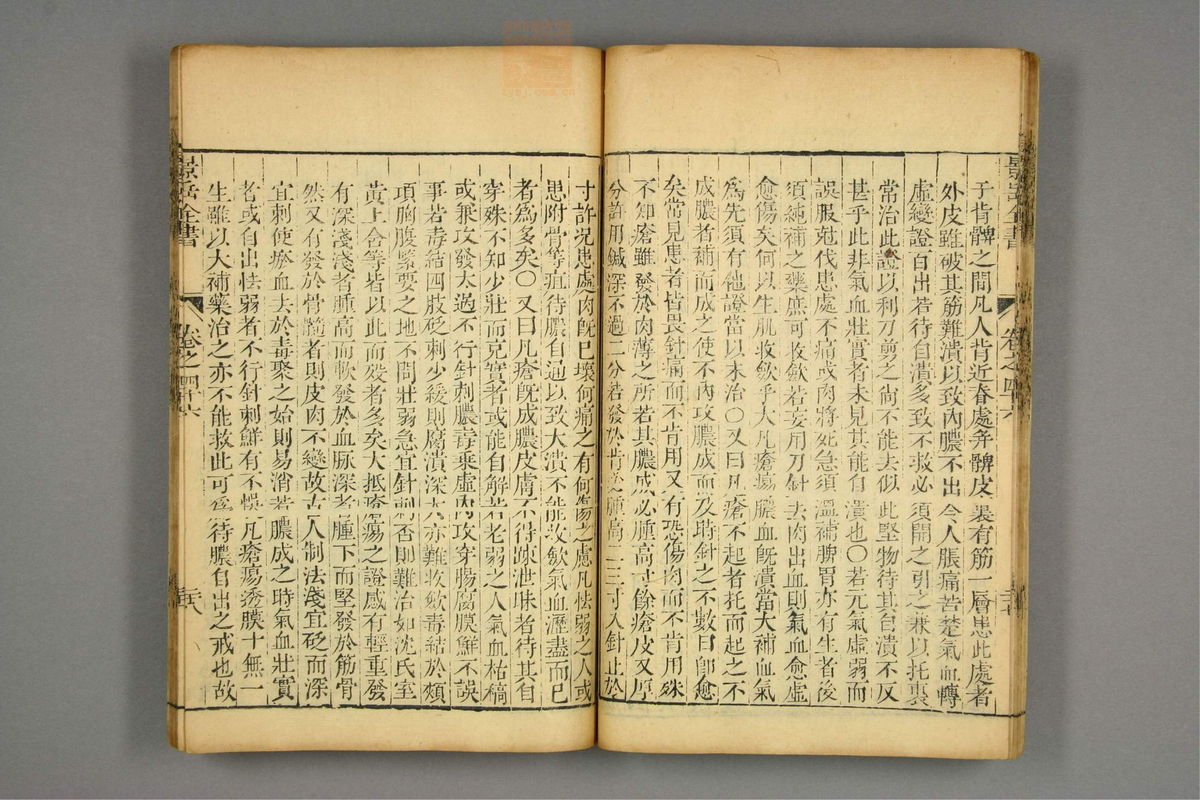 景岳全書 卷之四十六
于肯髀之間凡人肯近脊處并髀皮裏有筋一層患此處者
外皮雖破其筋難潰以致內膿不出令人脹痛苦楚氣血轉
虛變證百出若待自潰多致不救必須開之引之兼以托裏
常治此證以利刀剪之尚不能去似此堅物待其自潰不反
甚乎此非氣血壯實者未見其能自潰也〇若元氣虛弱而
誤服尅伐患處不痛或肉將死急須溫補脾胃亦有生者後
須純補之藥庶可收歛若妄用刀針去肉出血則氣血愈虛
愈傷矣何以生肌收歛乎大凡瘡瘍膿血既潰當大補血氣
為先須有他證當以末治〇又曰凡瘡不起者托而起之不
成膿者補而成之使不內攻膿成而及時針之不數日卽愈
矣常見患者皆畏針痛而不肯用又有恐傷肉而不肯用殊
不知瘡雖發於肉薄之所若其膿成必腫高寸餘瘡皮又厚
分許用鍼深不過二分若發於背必腫高二三寸入針止於
寸許況患處肉既已壞何痛之有何傷之慮凡怯弱之人或
患附骨等疽待膿自通以致大潰不能收歛氣血瀝盡而已
者為多矣〇又曰凡瘡既成膿皮膚不得疎泄昧者待其自
穿殊不知少壯而充實者或能自解若老弱之人氣血祜稿
或兼攻發太過不行針刺膿毒乘虛內攻穿腸腐膜鮮不誤
事若毒結四肢砭刺少緩則腐潰深大亦難收歛毒結於頰
項胸腹緊要之地不問壯弱急宜針刺否則難治如沈氏室
黃上舍等皆以此而歿者多矣大抵瘡瘍之證感有輕重發
有深淺淺者腫高而軟發於血脉深者腫下而堅發於筋骨
然又有發於骨髓者則皮肉不變故古人制法淺宜砭而深
宜刺使瘀血去於毒聚之始則易消若膿成之時氣血壯實
者或自出怯弱者不行針刺鮮有不悞凡瘡瘍透膜十無一
生雖以大補藥治之亦不能救此可為待膿自出之戒也故
景岳全書 卷之四十六 三八